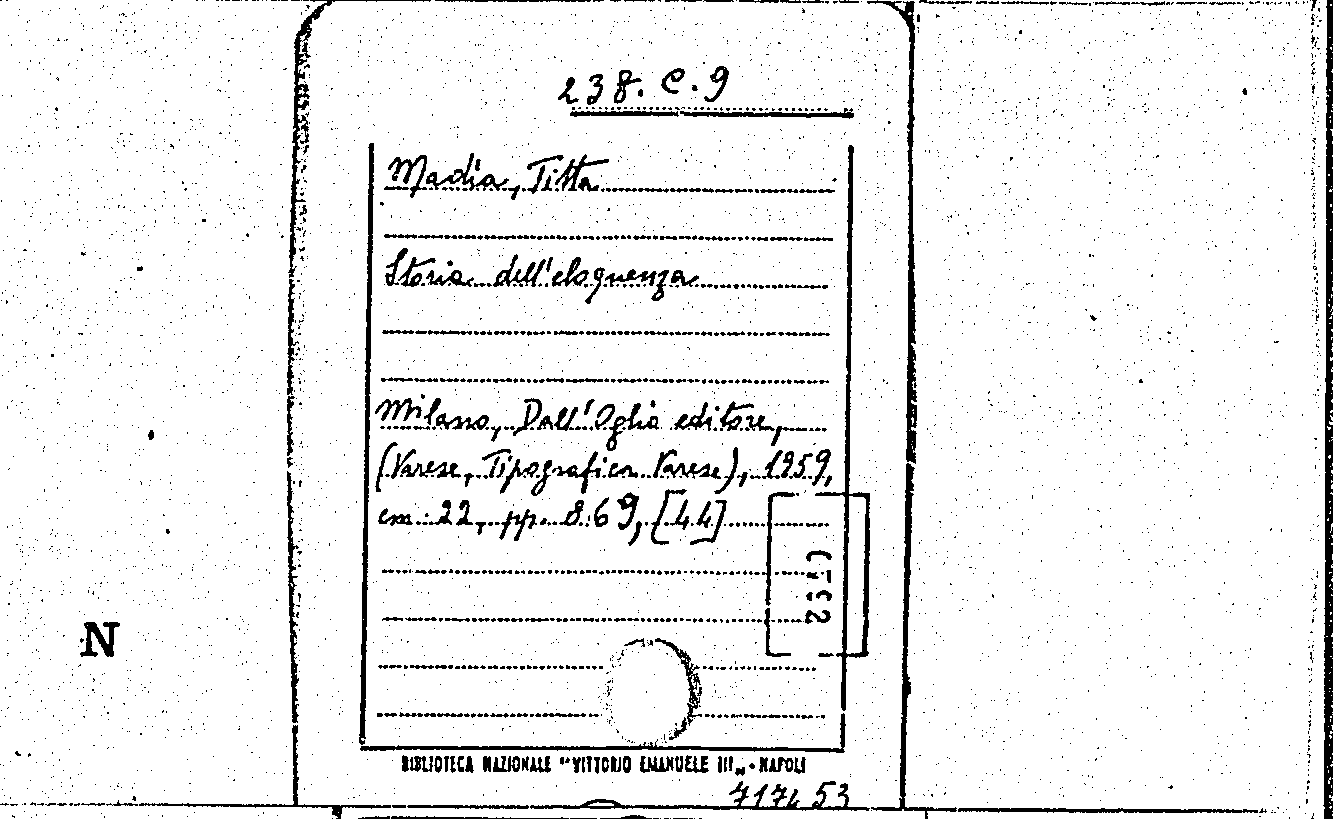 238.C.9
Madia, Titta
Storia dell'eloquenza
Milano, Dall'Oglio editore,
(Varese, Tipografica Varese), 1959,
cm. 22, pp. 869, [44]
N
BIBLIOTECA NAZIONALE "VITTORIO EMANUELE III" - NAPOLI
717453